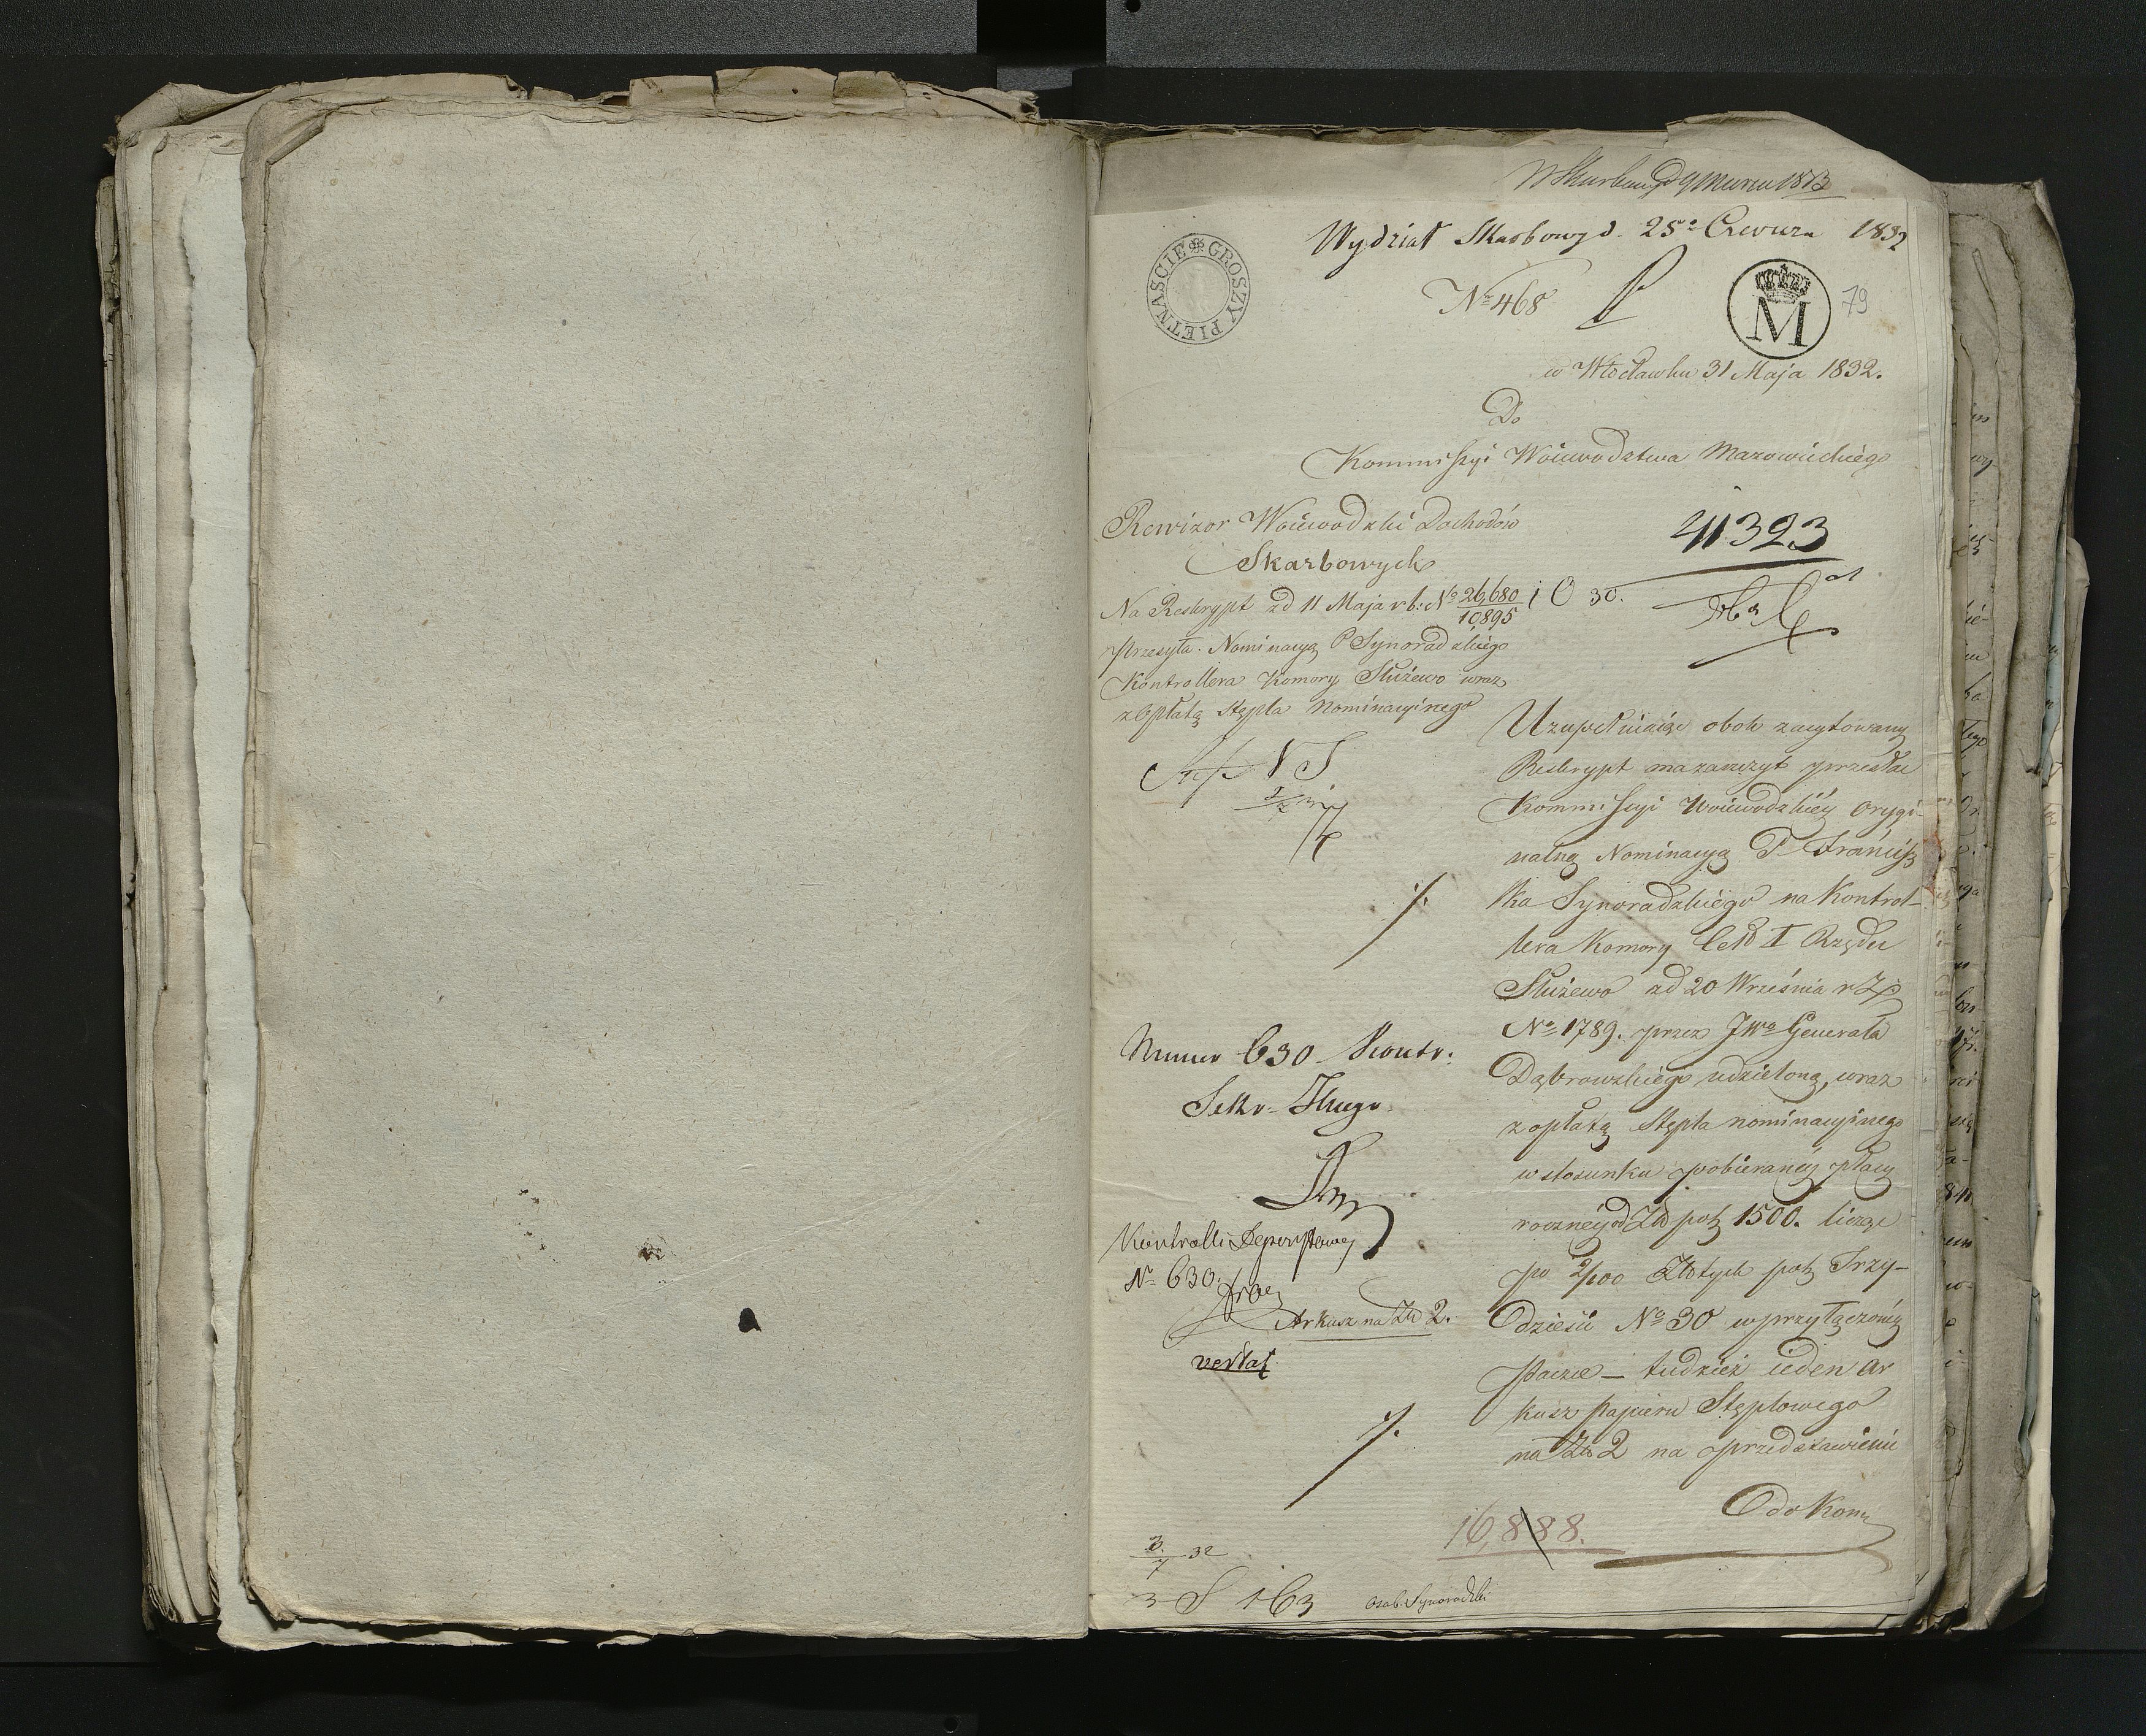 Wydział Skarbowy d. 25º Czerwca 1832
PIĘTNAŚCIE GROSZY
Nº 468
M
79
w Włocławku 31 Maja 1832.
Do
Kommissyi Woiewodztwa Mazowieckiego
Rewizor Woiewodzki Dochodów
Skarbowych
41323
Na Reskrypt ad 11 Maja r b: Nº 26,680/10895 i O 30.
Przesyła Nominacyą P Synoradzkiego
Kontrollera Komory Służewo wraz
z Opłatą Stępla Nominacyinego
Uzupełniaiąc obok zacytowany
Reskrypt mazaszczyt przesłać
Kommissyi Woiewodzkiéy orygi-
nalną Nominacyą P. Francisz
ka Synoradzkiego na Kontrol-
lera Komory Celń II Rzędu
Służewo ad 20 Września r Z
Nº 1789. przez JWº Generała
Dąbrowskiego udzieloną, wraz
z opłatą Stępla nominacyinego
w stosunku pobieranéy płacy
rocznéy od Złł pol 1500. licząc
po 2/100 Złotych pol Trzy-
dzieści Nº 30 w przyłączonéy
Paczce — tudzież ieden ar
kusz Papieru Stęplowego
na Złł 2 na przedstawienie
Numer 630 Kontr.
Kontrolli Depozytowey
Nº 630.
Arkusz na Złł 2.
16,888.
Do Kom
3/7 32
S 163
Osob. Synoradzki